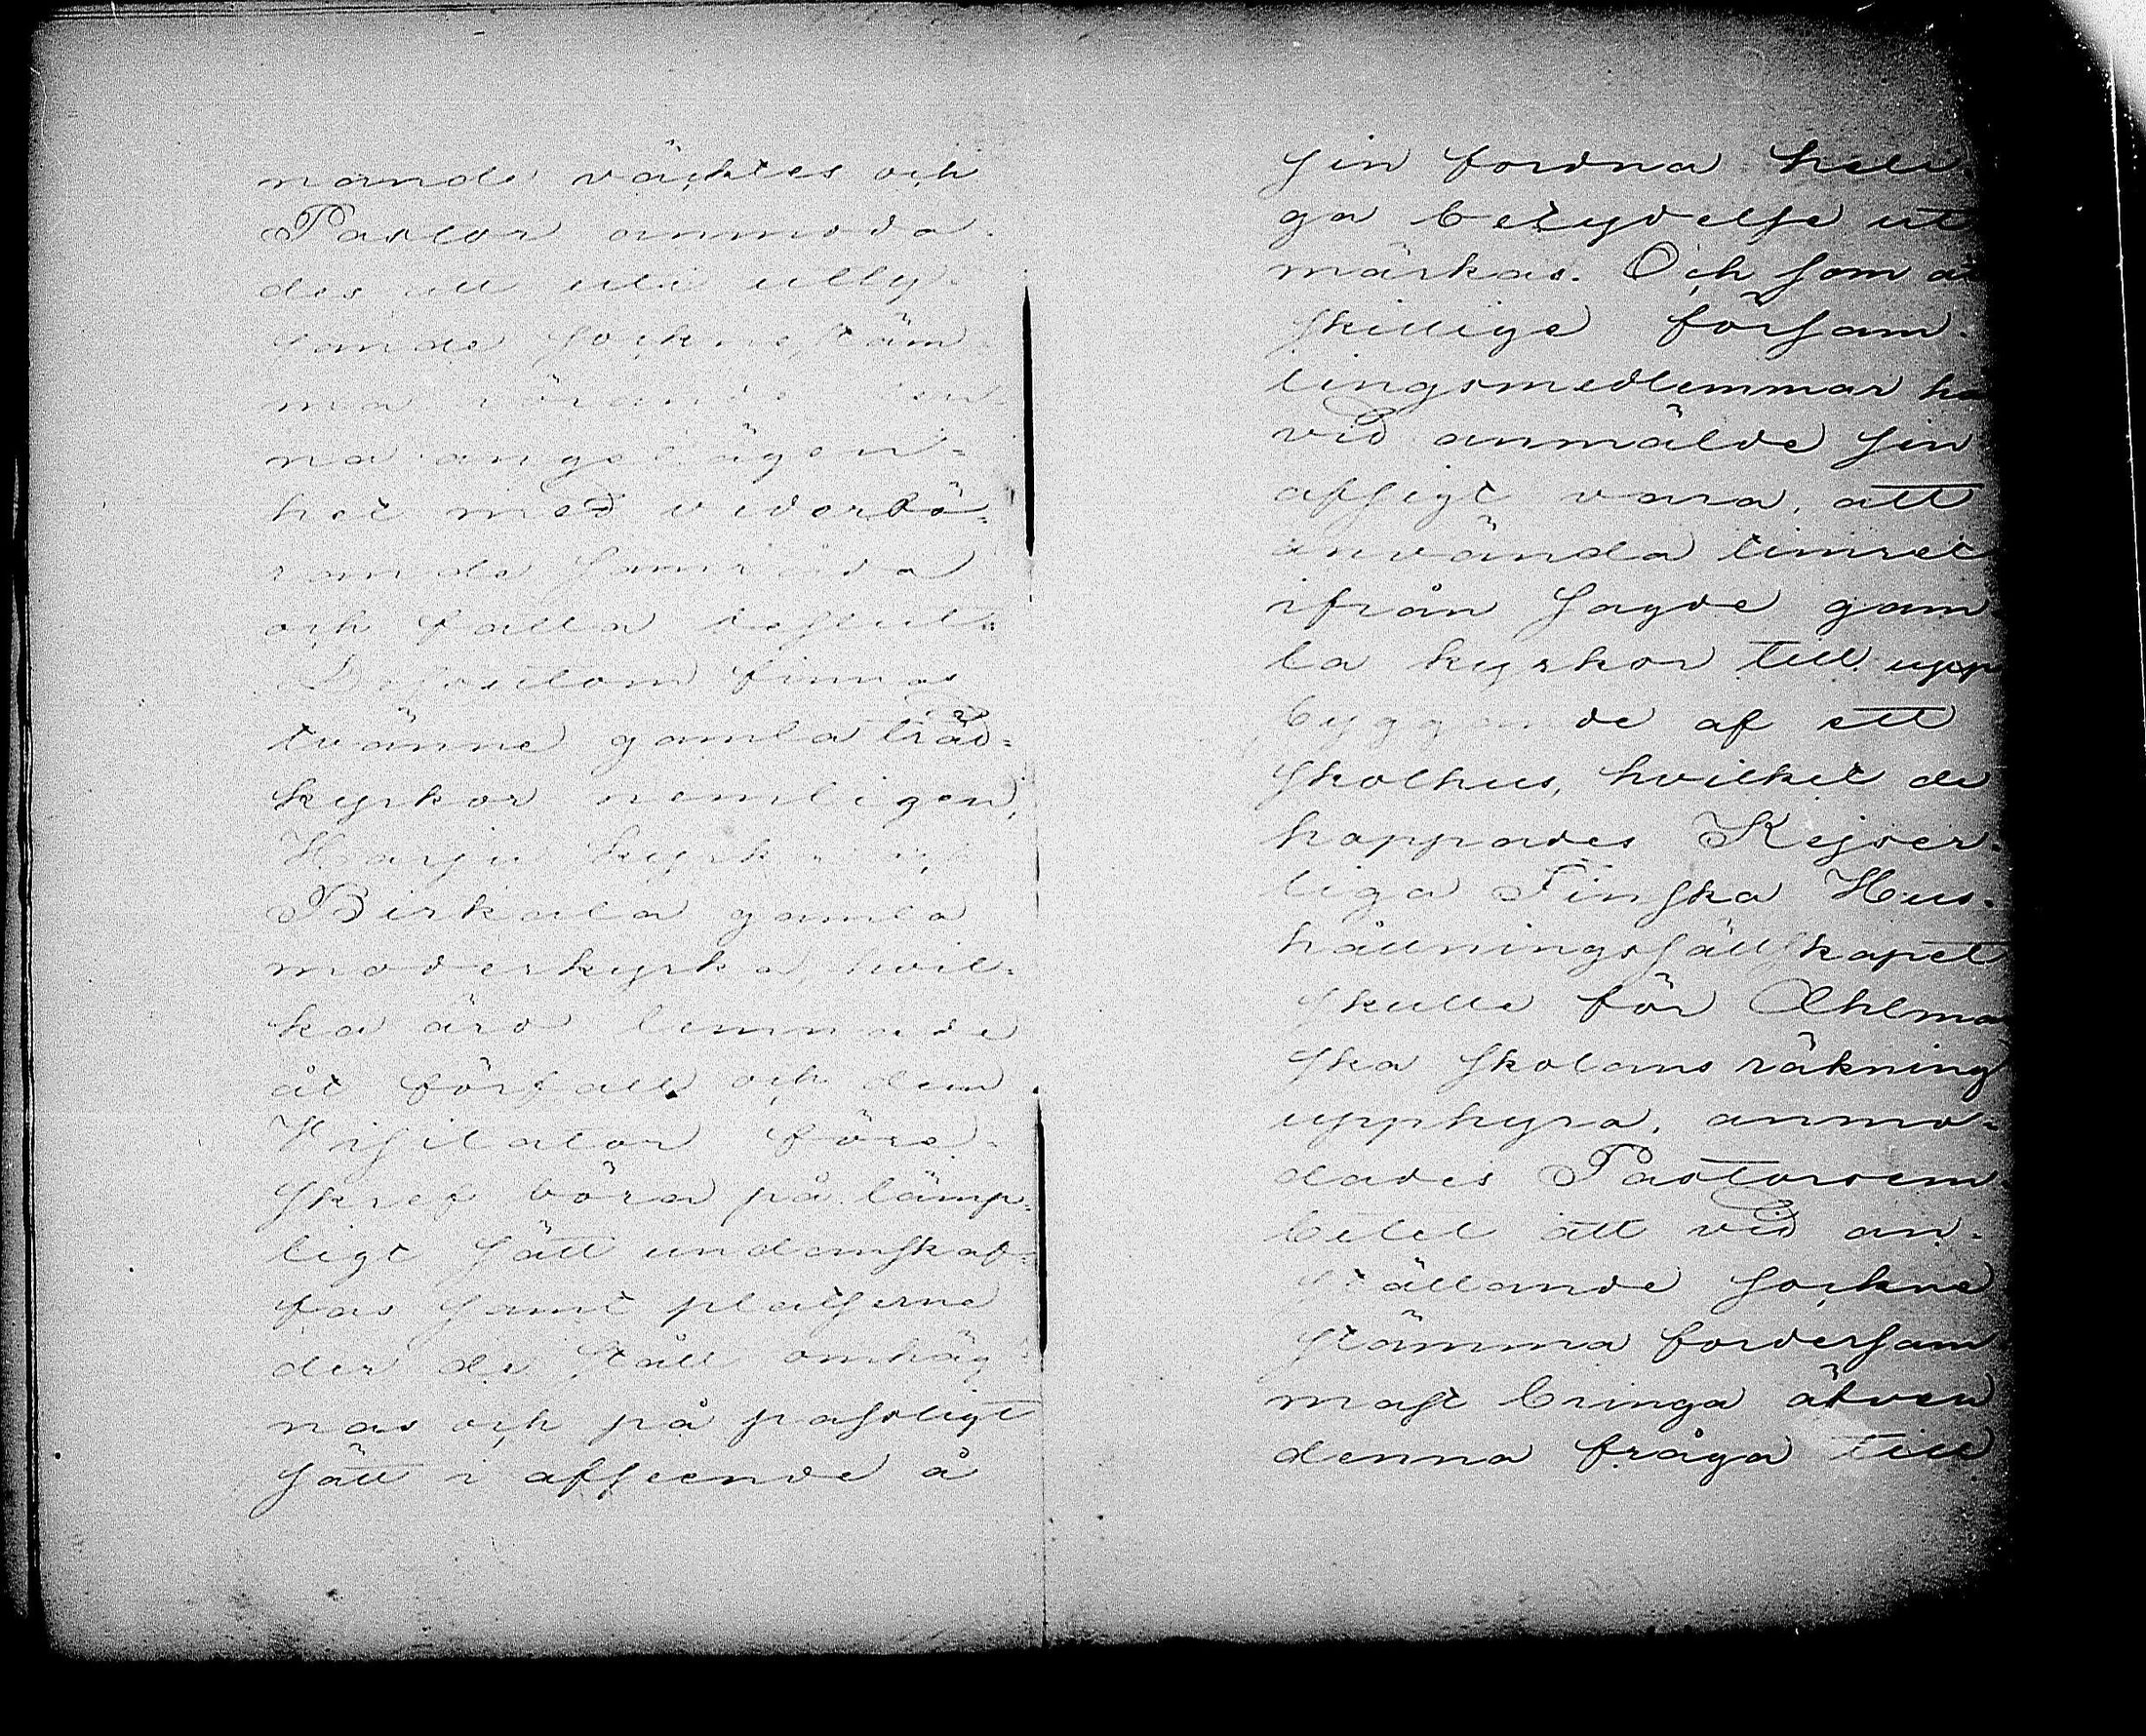 nande väcktes och
Pastor anmoda
des att uti utly
sande sockenstäm
ma rörande den
na angelägen=
het med vederbö=
rande samråda
och fatta beslut.
Dessutom finnas
tvänne gamla träd=
kyrkor nemligen,
Harju kyrka och
Birkala gamla
moderkyrka, hvil=
ka äro lemnade
åt förfall och dem
Visitator före=
skref böra på lämp=
ligt sätt undanskaf=
fas samt platserne
der de stått omhäg
nas och på passligt
sätt i afseende å
sin fordna heli
ga betydelse ut
märkas. Och som åt
skillige försam=
lingsmedlemmar här
vid anmälde sin
afsigt vara, att
använda timret
ifrån sagde gam=
la kyrkor till upp
byggande af ett
skolhus, hvilket de
hoppades Kejser=
liga Finska Hus=
hållningssällskapet
skulle för Ahlman
ska skolans räkning
upphyra, anmo=
dades Pastorsem=
betet att vid an=
ställande sockne
stämma fordersam
mast bringa äfven
denna fråga till